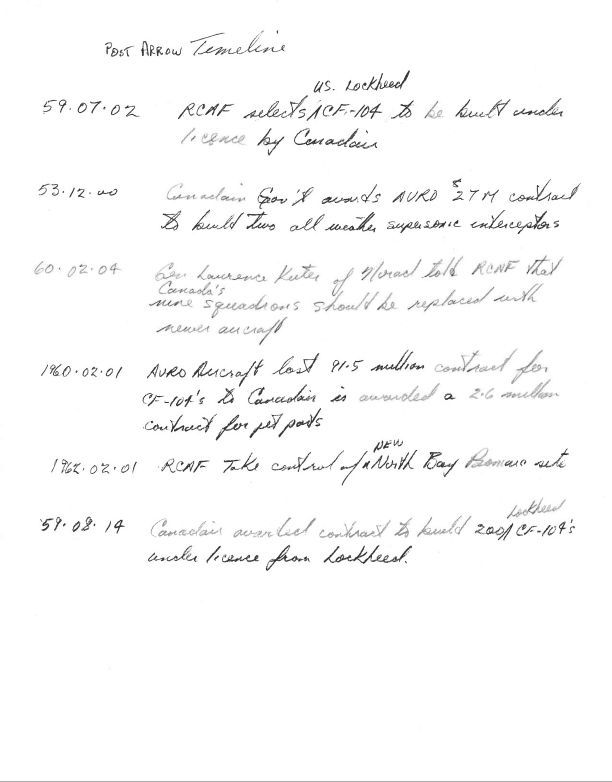 POST ARROW Timeline
U.S. Lockheed
59.07.02 RCAF selects CF-104 to be built under
licence by Canadair
53.12.00 Canadian Gov't awards AVRO $27M contract
to build two all weather supersonic interceptors
60.02.04 Gen Laurence Kuter of Norad told RCAF that
Canada's
nine squadrons should be replaced with
newer aircraft
1960.02.01 AVRO Aircraft lost 91.5 million contract for
CF-104's to Canadair is awarded a 2.6 million
contract for jet parts
NEW
1962.02.01 RCAF Take control of North Bay Bomarc site
Lockheed
59.08.14 Canadair awarded contract to build 200 CF-104's
under licence from Lockheed.